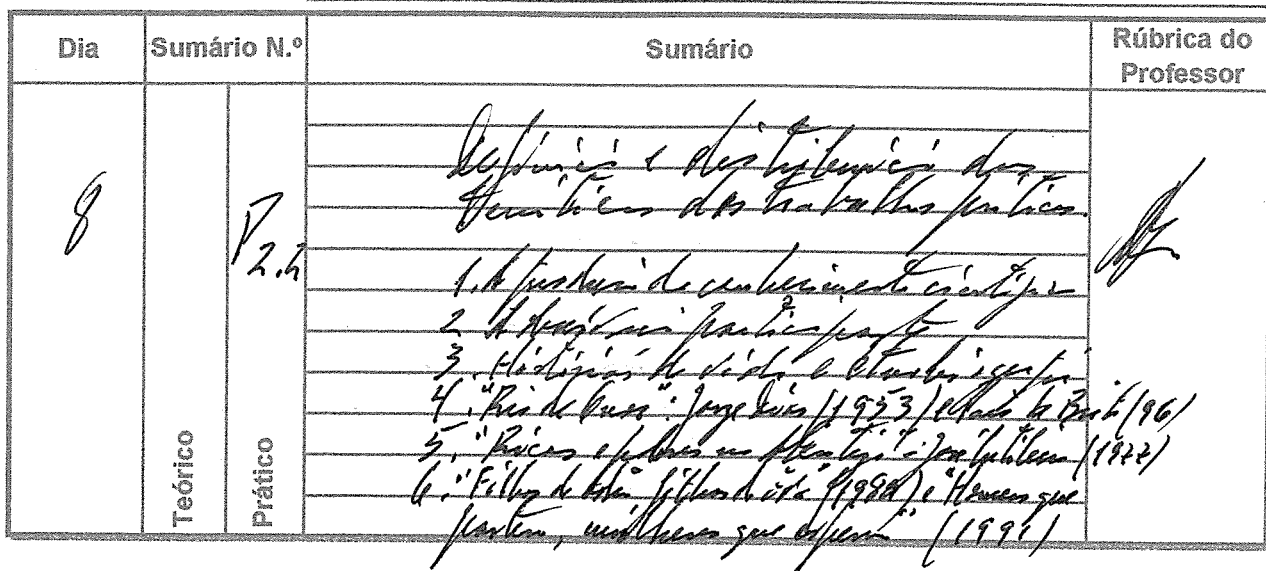 Dia Sumário N.º Sumário Rúbrica do Professor
8 P2.2
Teórico Prático
Definição e distribuição das
temáticas dos trabalhos práticos.
1. A produção de conhecimento científico
2. A observação participante
3. Histórias de vida e etnobiografia
4. "Rio de Onor": Jorge Dias (1953) e Pais de Brito (96)
5. "Ricos e pobres no Alentejo": José Cutileiro (1977)
6. "Filhos de Adão filhos de Eva" (1988) e "Homens que
partem, mulheres que esperam" (1991)